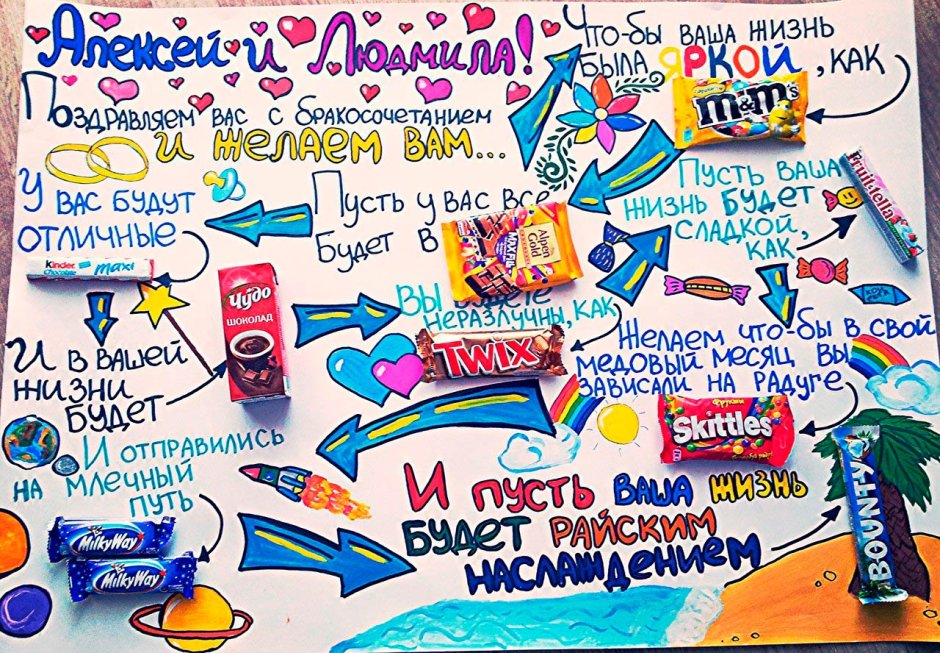 Алексей и Людмила!
Поздравляем вас с бракосочетанием
и желаем вам...
Что-бы ваша жизнь
была яркой, как
m&m's
Пусть ваша
жизнь будет
сладкой,
как
Fruittella
Пусть у вас все
будет в
Alpen
Gold
У вас будут
отличные
kinder
chocolate
maxi
И в вашей
жизни
будет
Чудо
шоколад
Вы будете
неразлучны, как
TWIX
Желаем что-бы в свой
медовый месяц вы
зависали на радуге
Skittles
И отправились
на млечный
путь
MilkyWay
MilkyWay
И пусть ваша жизнь
будет райским
наслаждением
BOUNTY